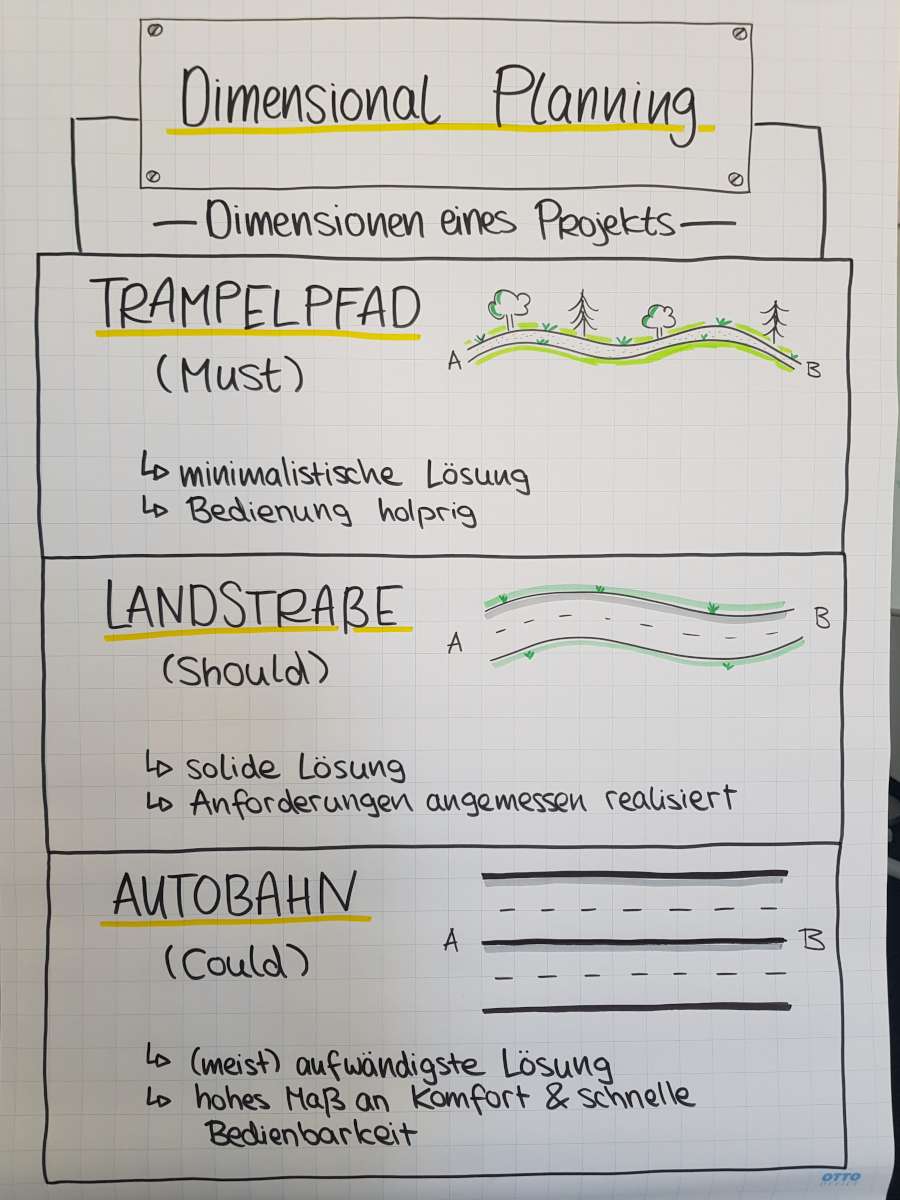 Dimensional Planning
— Dimensionen eines Projekts —
TRAMPELPFAD
(Must)
A
B
↳ minimalistische Lösung
↳ Bedienung holprig
LANDSTRAßE
(Should)
A
B
↳ solide Lösung
↳ Anforderungen angemessen realisiert
AUTOBAHN
(Could)
A
B
↳ (meist) aufwändigste Lösung
↳ hohes Maß an Komfort & schnelle
Bedienbarkeit
OTTO